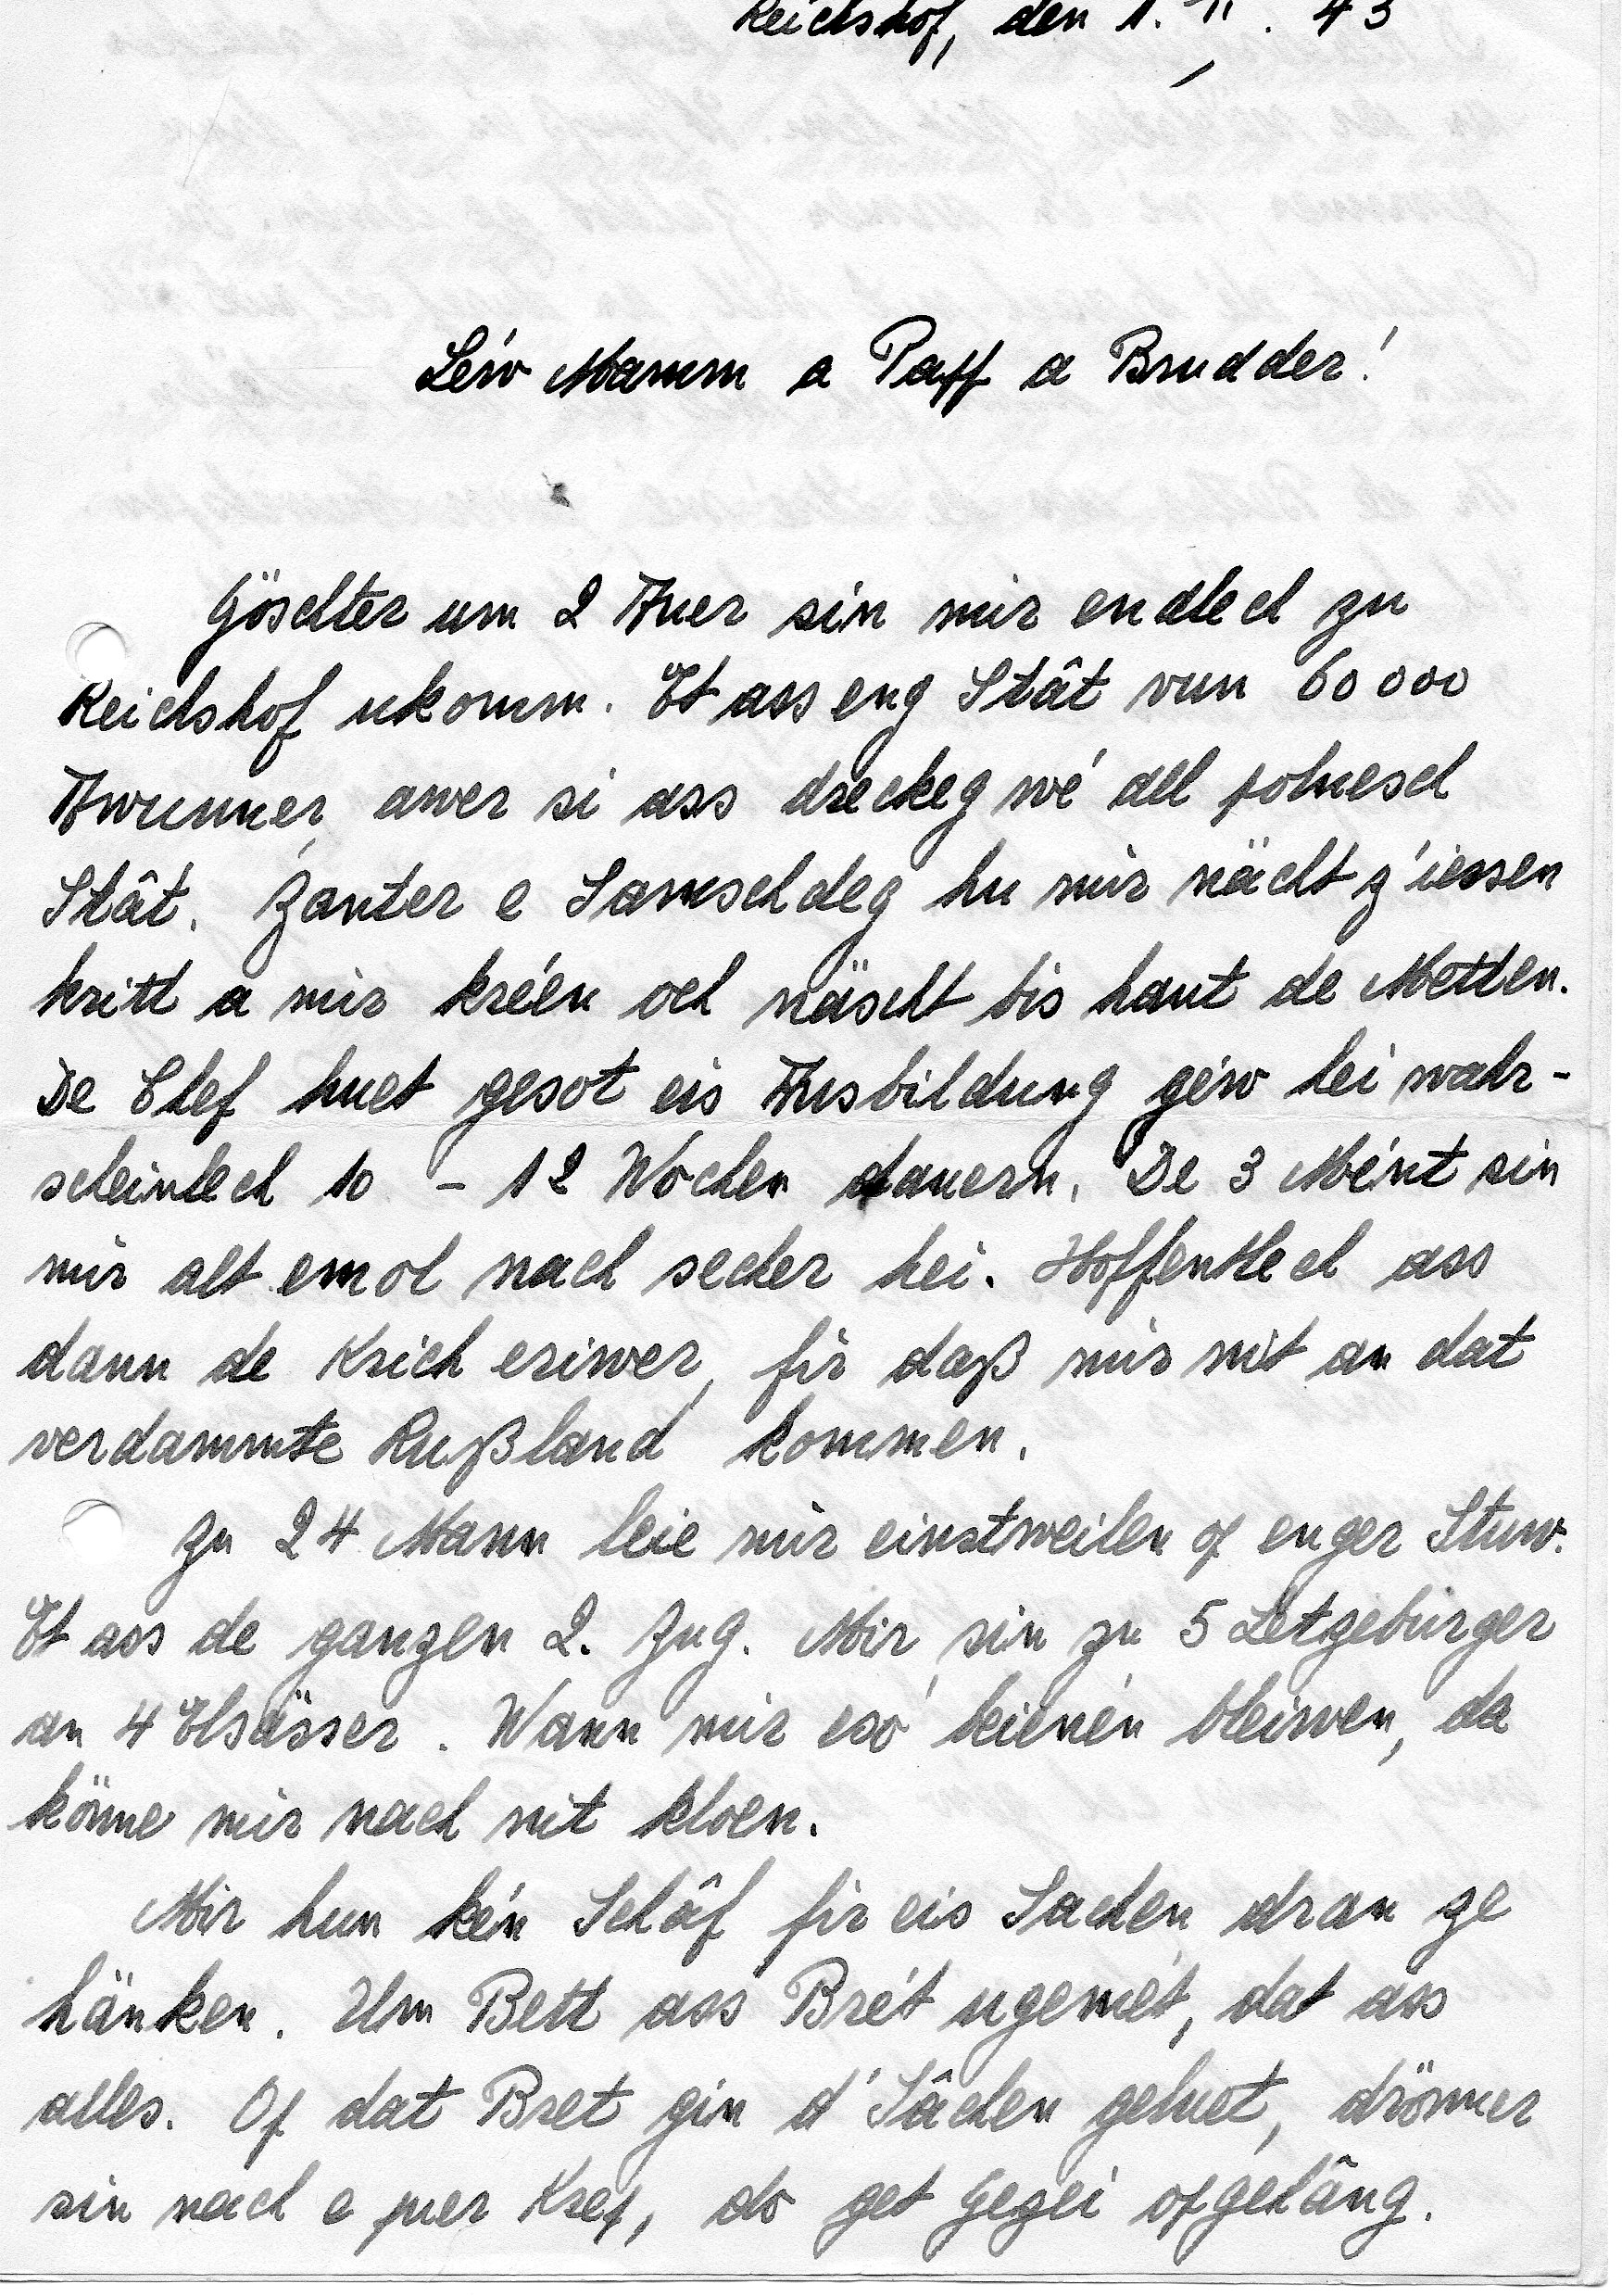 Reichshof, den 1. II. 43
Léiw Mamm a Papp a Brudder!
Göschter um 2 Auer sin mir endlech zu
Reichshof ukomm. Et ass eng Stât vun 60 000
Awunner, awer si ass dreckeg wé all polnesch
Stât. Zanter e Samschdeg hu mir näscht z'iessen
kritt a mir kréen och näscht bis haut de Metten.
De Chef huet gesot eis Ausbildung géw hei wahr-
scheinlech 10 - 12 Wochen dauern. De 3 Mént sin
mir alt emol nach secher hei. Hoffentlech ass
dann de Krich eriwer, fir daß mir nit an dat
verdammte Rußland kommen.
Zu 24 Mann leie mir einstweilen of enger Stuw.
Et ass de ganzen 2. Zug. Mir sin zu 5 Letzebürger
an 4 Elsässer. Wann mir esó beienén bleiwen, da
könne mir nach nit kloen.
Mir hun kén Schâf fir eis Sachen dran ze
hänken. Um Bett ass Brét ugemét, dat ass
alles. Of dat Bret gin d'Sâchen geluet, drönner
sin nach e puer Krep, do get Gezei ofgehâng.